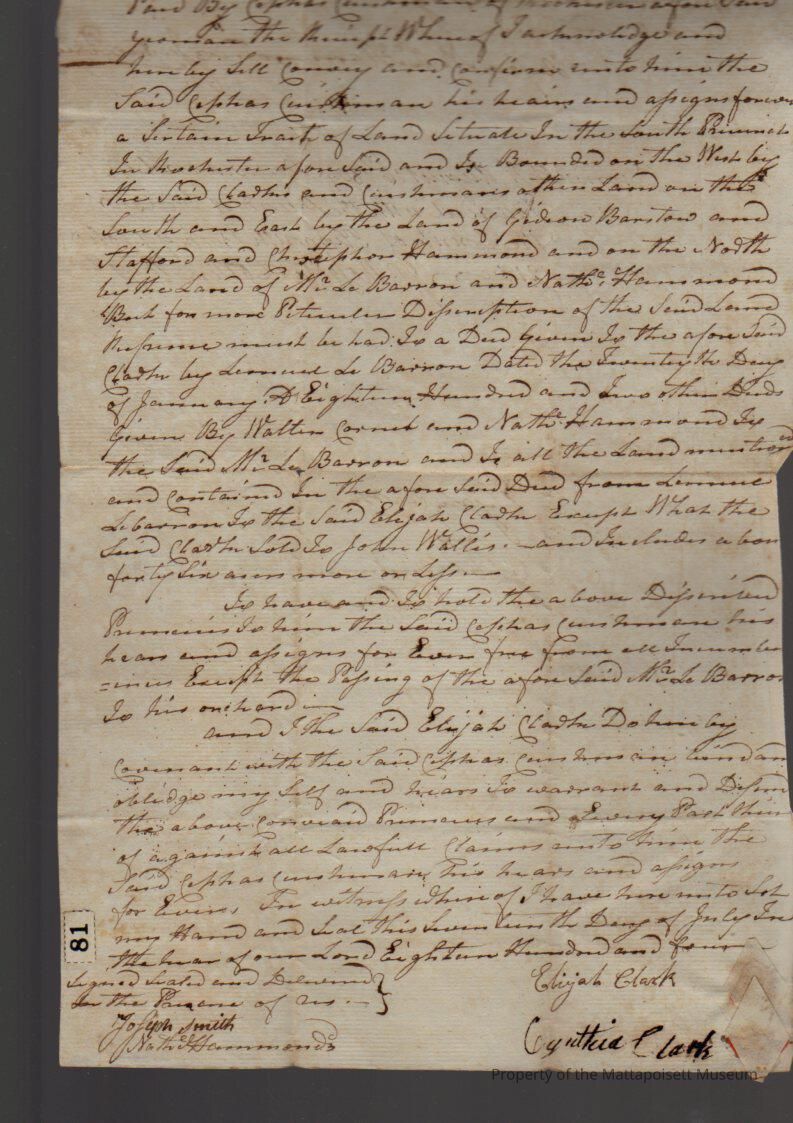 Paid By Cephas Cushman of Rochester afore Said
yeoman the Receipt Whereof I acknowledge and
here by Sell Convey and Confirm unto him the
Said Cephas Cushman his heairs and assigns forever
a Sertain Tract of Land Setuate In the South Precinct
In Rochester afore Said and Is Bounded on the West by
the Said Clarks and Cushmans other Land on the
South and East by the Land of Gideon Barstow and
Stafford and Christopher Hammond and on the North
by the Land of Mr Le Barron and Nathl Hammond
But for more Peticuler Discription of the Said Land
Refrence must be had To a Deed Given To the afore Said
Clark by Lemuel Le Barron Dated the Twentyth Day
of January AD Eighteen Hundred and Two other Deeds
Given By Walter and Nathl Hammond To
the Said Mr Le Barron and Is all the Land mentioned
and Contained In the afore Said Deed from Lemuel
Lebarron To the Said Elijah Clark Except What the
Said Clark Sold To John Wallis. — and Includes a bou
forty Six acers more or Less —
To have and To hold the a bove Discribed
Premices To him the Said Cephas Cushman his
hears and assigns for Ever free from all Incumber
=inces Except the Passing of the afore Said Mr Le Barron
To his orchard —
and I the Said Elijah Clark Do here by
Covenant with the Said Cephas Cushman bind and
obledge my Self and hears To warrant and Defend
the above Conveaid Premices and Every Part thire
of against all Lawfull Claims unto him the
Said Cephas Cushman, his hears and assigns
for Ever. In witness whereof I have here unto Set
my Hand and Seal this Seventeenth Day of July In
the hear of our Lord Eighteen Hundred and four —
Signed Sealed and Delivered
In the Presence of us. —
Elijah Clark
Joseph Smith
Nathl Hammond
Cynthia Clark
81
Property of the Mattapoisett Museum